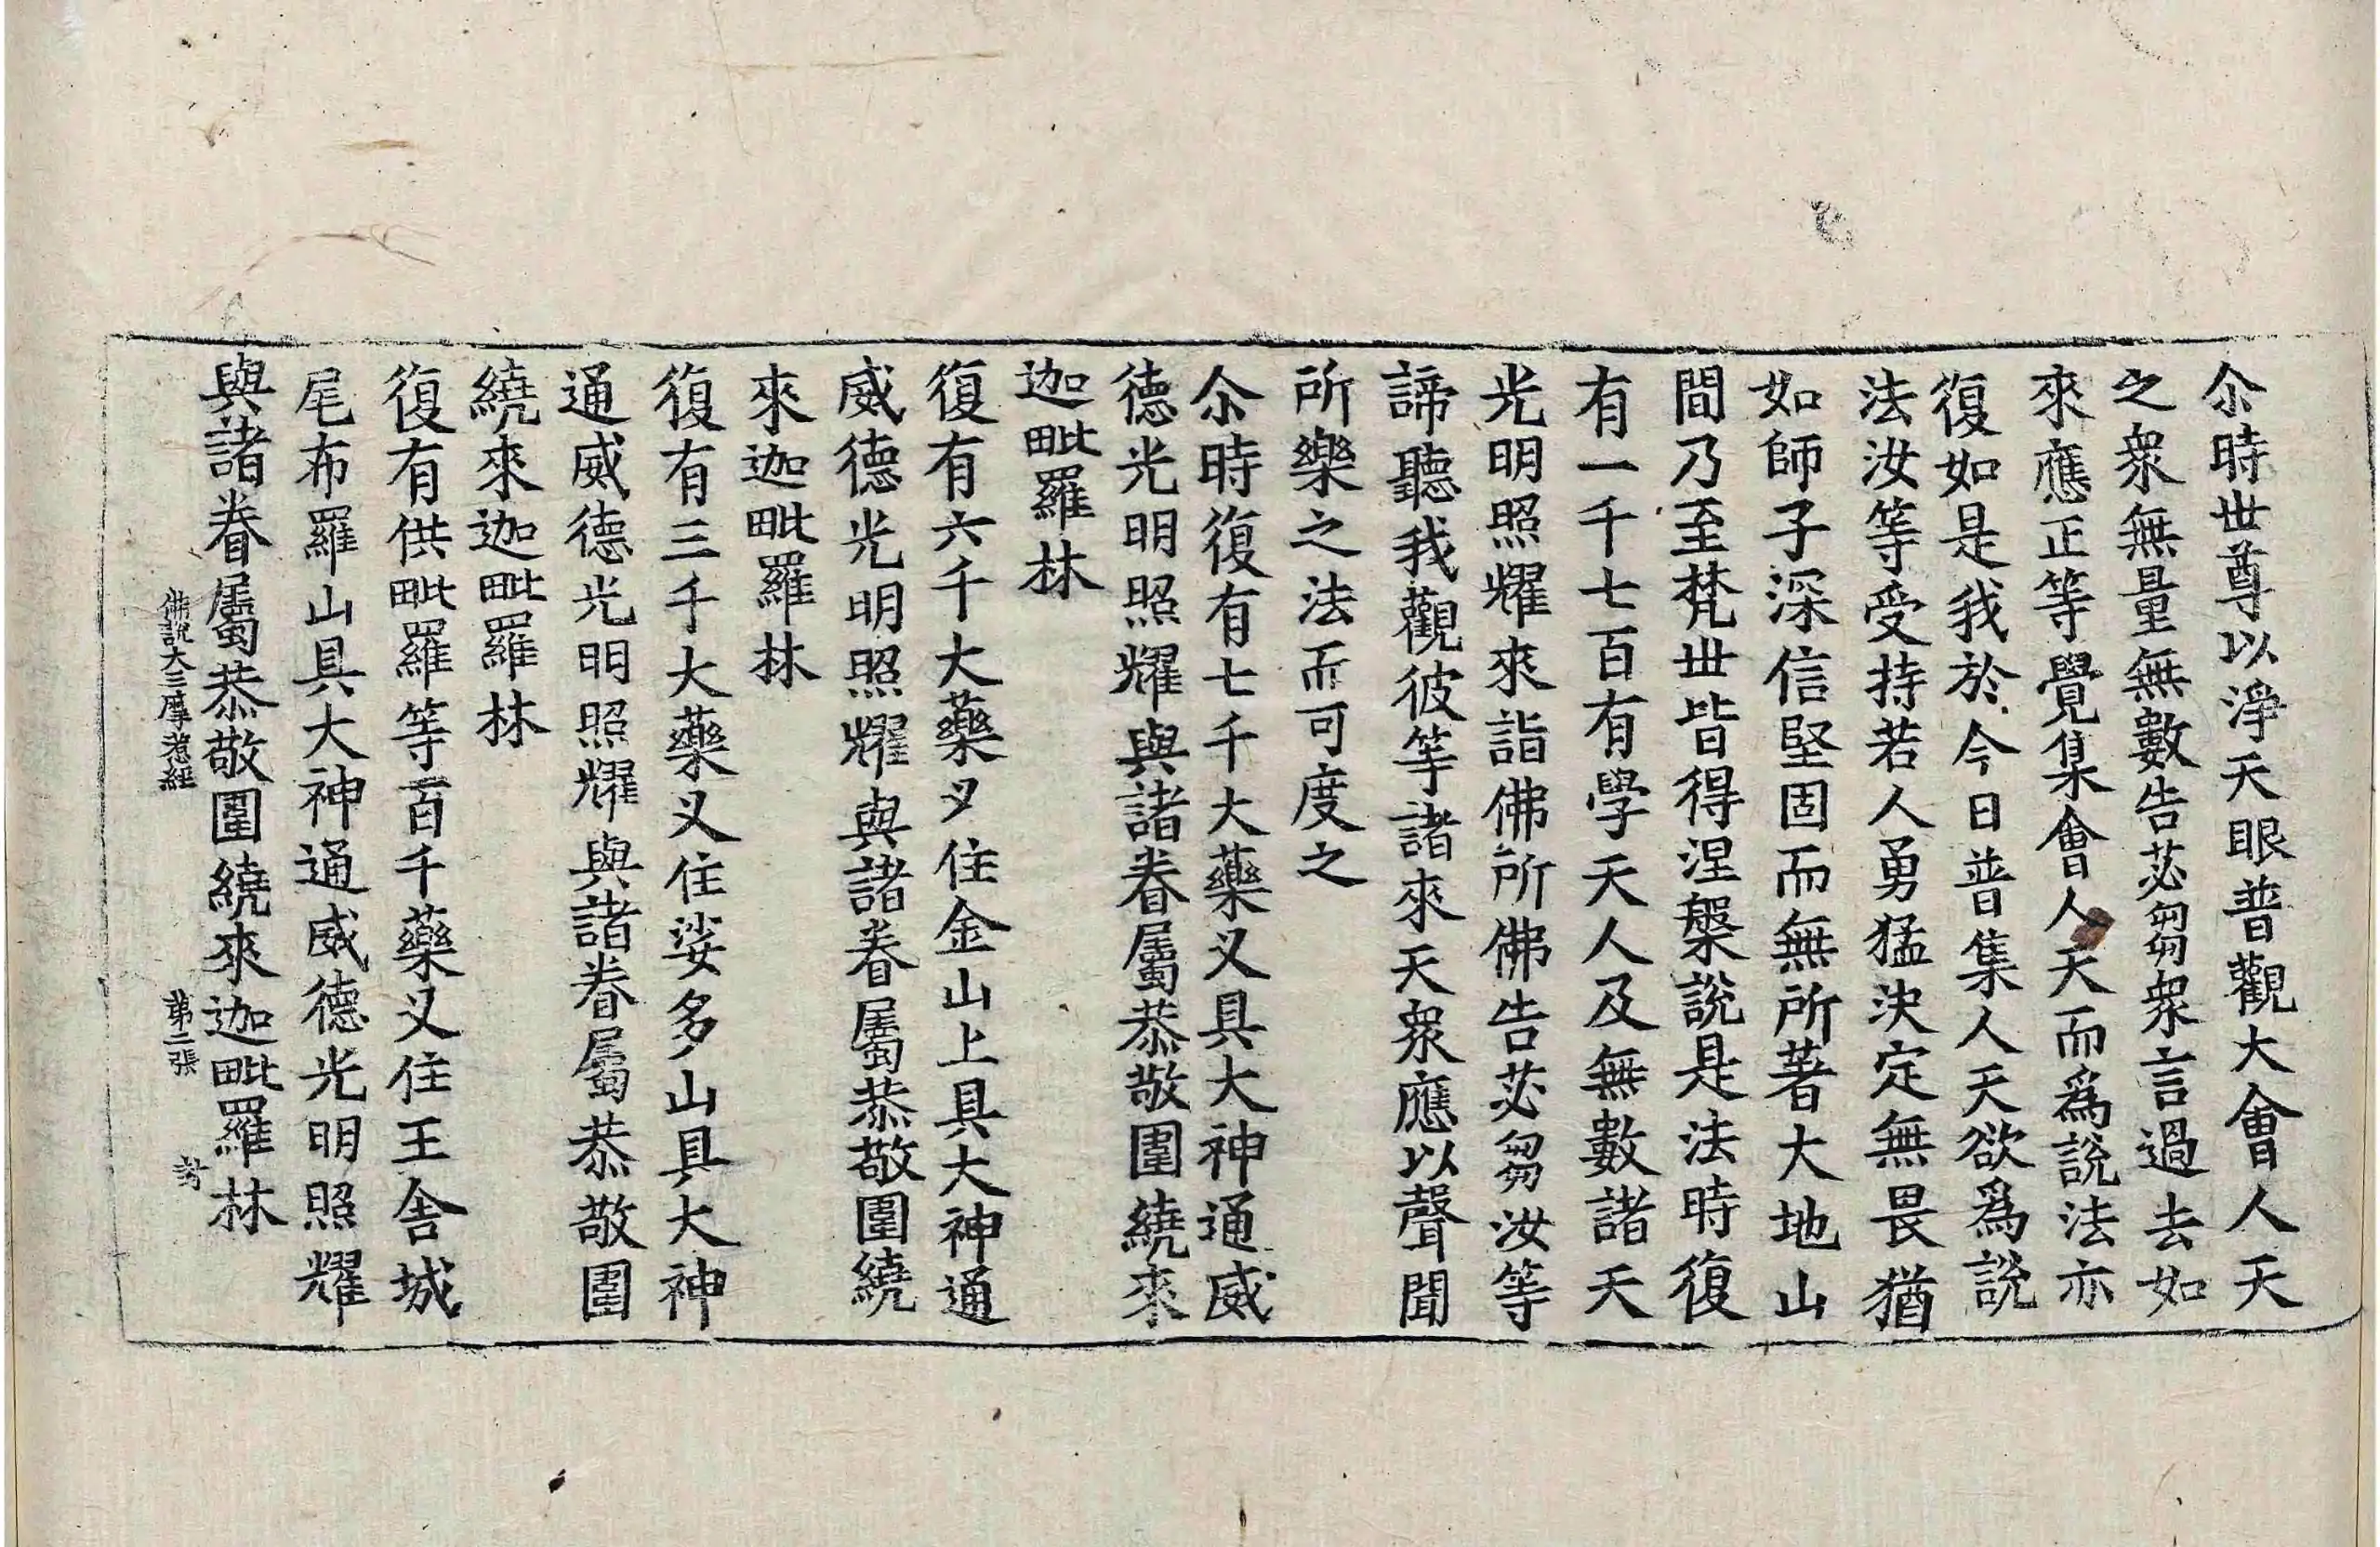 尒時世尊以淨天眼普觀大會人天
之衆無量無數告苾芻衆言過去如
來應正等覺集會人天而爲說法亦
復如是我於今日普集人天欲爲說
法汝等受持若人勇猛決定無畏猶
如師子深信堅固而無所著大地山
間乃至梵世皆得涅槃說是法時復
有一千七百有學天人及無數諸天
光明照耀來詣佛所佛告苾芻汝等
諦聽我觀彼等諸來天衆應以聲聞
所樂之法而可度之
尒時復有七千大藥叉具大神通威
德光明照耀與諸眷屬恭敬圍繞來
迦毗羅林
復有六千大藥叉住金山上具大神通
威德光明照耀與諸眷屬恭敬圍繞
來迦毗羅林
復有三千大藥叉住娑多山具大神
通威德光明照耀與諸眷屬恭敬圍
繞來迦毗羅林
復有供毗羅等百千藥叉住王舍城
尾布羅山具大神通威德光明照耀
與諸眷屬恭敬圍繞來迦毗羅林
佛說大三摩惹經 第二張